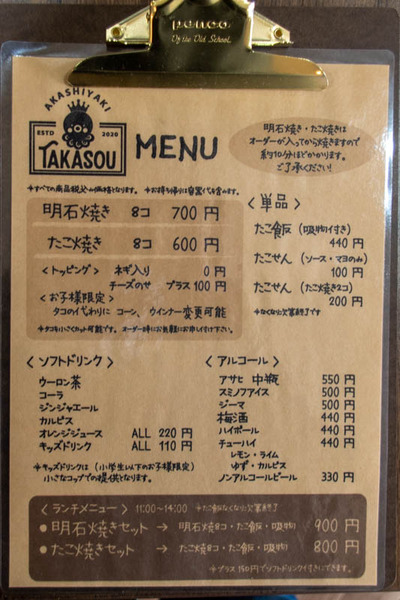 penco
Up the Old School.
AKASHIYAKI
ESTD 2020
TAKASOU
MENU
明石焼き・たこ焼きは
オーダーが入ってから焼きますので
約10分ほどかかります。
ご了承ください!
*すべての商品税込の価格となります。 *お持ち帰りは容器代を含みます。
明石焼き 8コ 700円
たこ焼き 8コ 600円
<トッピング> ネギ入り 0円
チーズのせ プラス 100円
<お子様限定>
タコの代わりに コーン、ウインナー変更可能
*タコを小さくカット可能です。オーダー時にお気軽にお申し付け下さい。
<単品>
たこ飯(吸物付き)
440円
たこせん(ソース・マヨのみ)
100円
たこせん(たこ焼き2コ)
200円
*なくなり次第終了です
<ソフトドリンク>
ウーロン茶
コーラ
ジンジャエール
カルピス
オレンジジュース ALL 220円
キッズドリンク ALL 110円
*キッズドリンクは(小学生以下のお子様限定)
小さなコップでの提供となります。
<アルコール>
アサヒ 中瓶 550円
スミノフアイス 500円
ジーマ 500円
梅酒 440円
ハイボール 440円
チューハイ 440円
レモン・ライム
ゆず・カルピス
ノンアルコールビール 330円
<ランチメニュー> 11:00〜14:00 *たこ飯なくなり次第終了
●明石焼きセット → 明石焼8コ・たこ飯・吸物 900円
●たこ焼きセット → たこ焼8コ・たこ飯・吸物 800円
*プラス150円でソフトドリンク付きにできます。